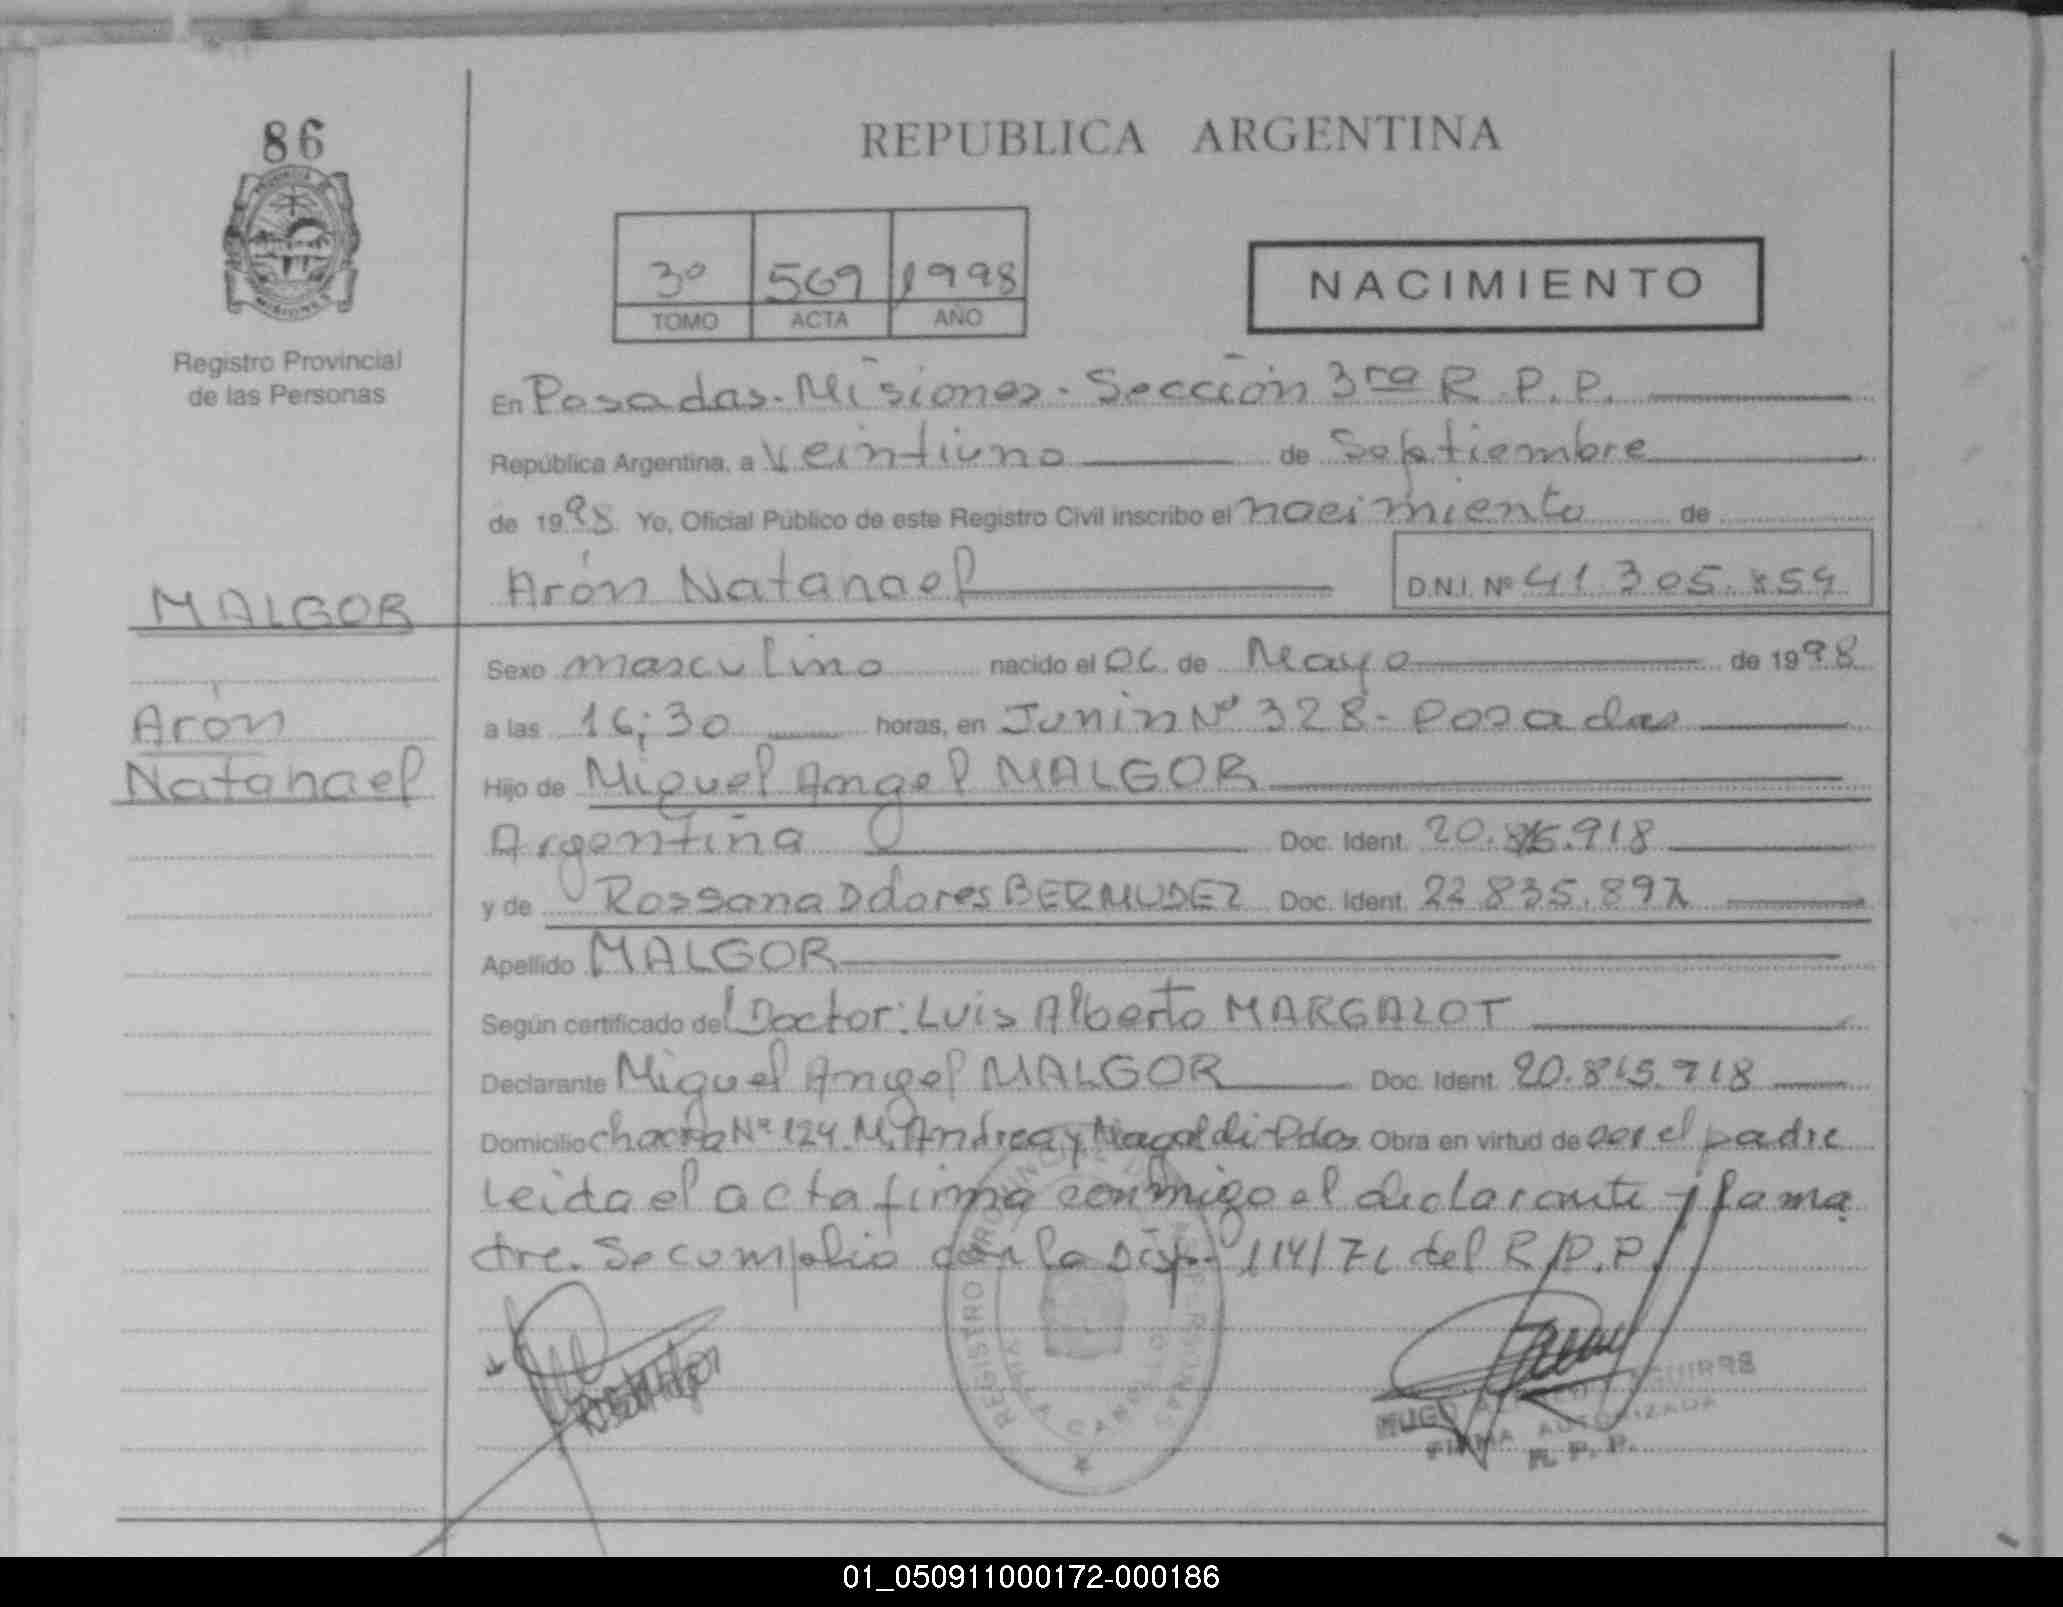 86
REPUBLICA ARGENTINA
3º 569 1998
TOMO ACTA AÑO
NACIMIENTO
Registro Provincial
de las Personas
En Posadas - Misiones - Sección 3ra R. P. P.
República Argentina, a Veintiuno de Septiembre
de 1998 Yo, Oficial Público de este Registro Civil inscribo el nacimiento de
Arón Natanael D.N.I. Nº 41.305.854
MALGOR
Sexo masculino nacido el 06 de Mayo de 1998
Arón
a las 16;30 horas, en Junin Nº 328 - Posadas
Natanael
Hijo de Miguel Angel MALGOR
Argentina Doc. Ident. 20.815.918
y de Rossana Dolores BERMUDEZ Doc. Ident. 22.835.897
Apellido MALGOR
Según certificado del Doctor: Luis Alberto MARGALOT
Declarante Miguel Angel MALGOR Doc. Ident. 20.815.918
Domicilio chacra Nº 124 M. Andrea y Magaldi - Pdas Obra en virtud de ser el padre
Leida el acta firma conmigo el declarante y la ma
dre. Se cumplio con la Disp. 114/71 del R.P.P.
REGISTRO PROVINCIAL DE LAS PERSONAS
HUGO AGUIRRE
FIRMA AUTORIZADA
R. P. P.
01_050911000172-000186